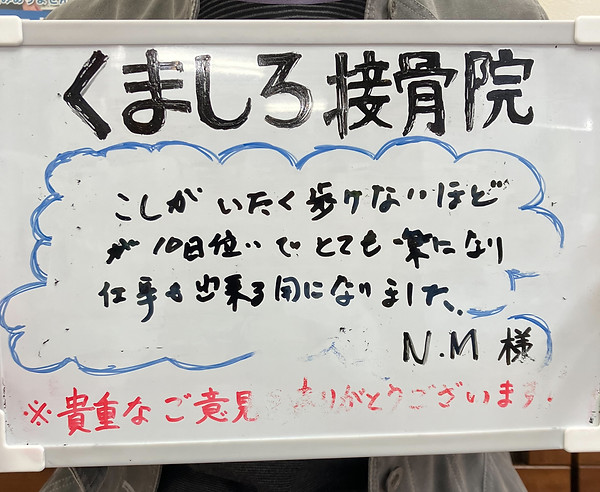 くましろ接骨院
こしがいたく歩けないほど
が10日位いでとても楽になり
仕事も出来る用になりました。
N.M 様
※貴重なご意見 ありがとうございます.